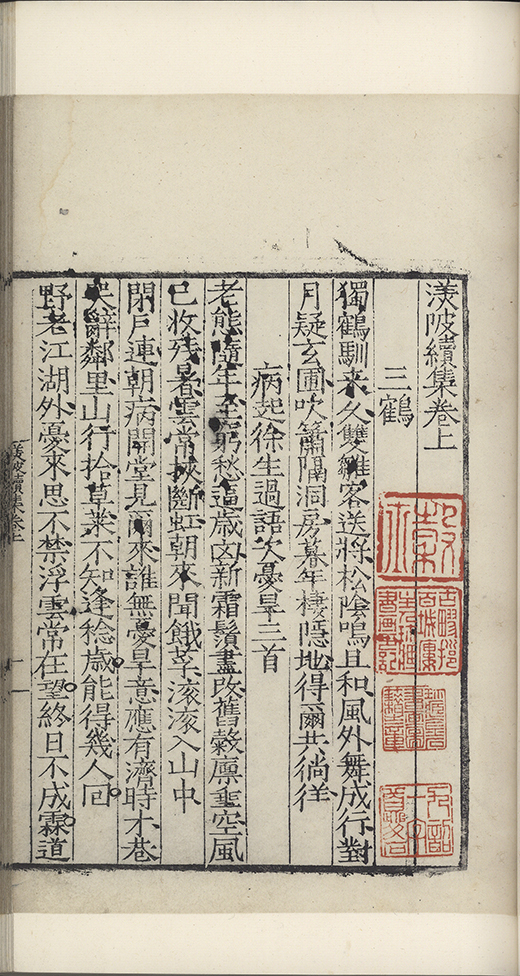 渼陂續集卷上
三鶴
獨鶴馴来久雙雛客送將松陰鳴且和風外舞成行對
月疑玄圃吹簫隔洞房暮年棲隱地得爾共徜徉
病起徐生過語次憂旱三首
老態隨年至窮愁逼歲凶新霜鬚盡改舊穀廩垂空風
已收残暑雲常掛斷虹朝来聞餓莩滚滚入山中
閉戸連朝病開堂見爾來誰無憂旱意應有濟時才巷
哭辭鄰里山行拾草萊不知逢稔歲能得幾人囘
野老江湖外憂來思不禁浮雲常在望終日不成霖道
渼陂續集卷上